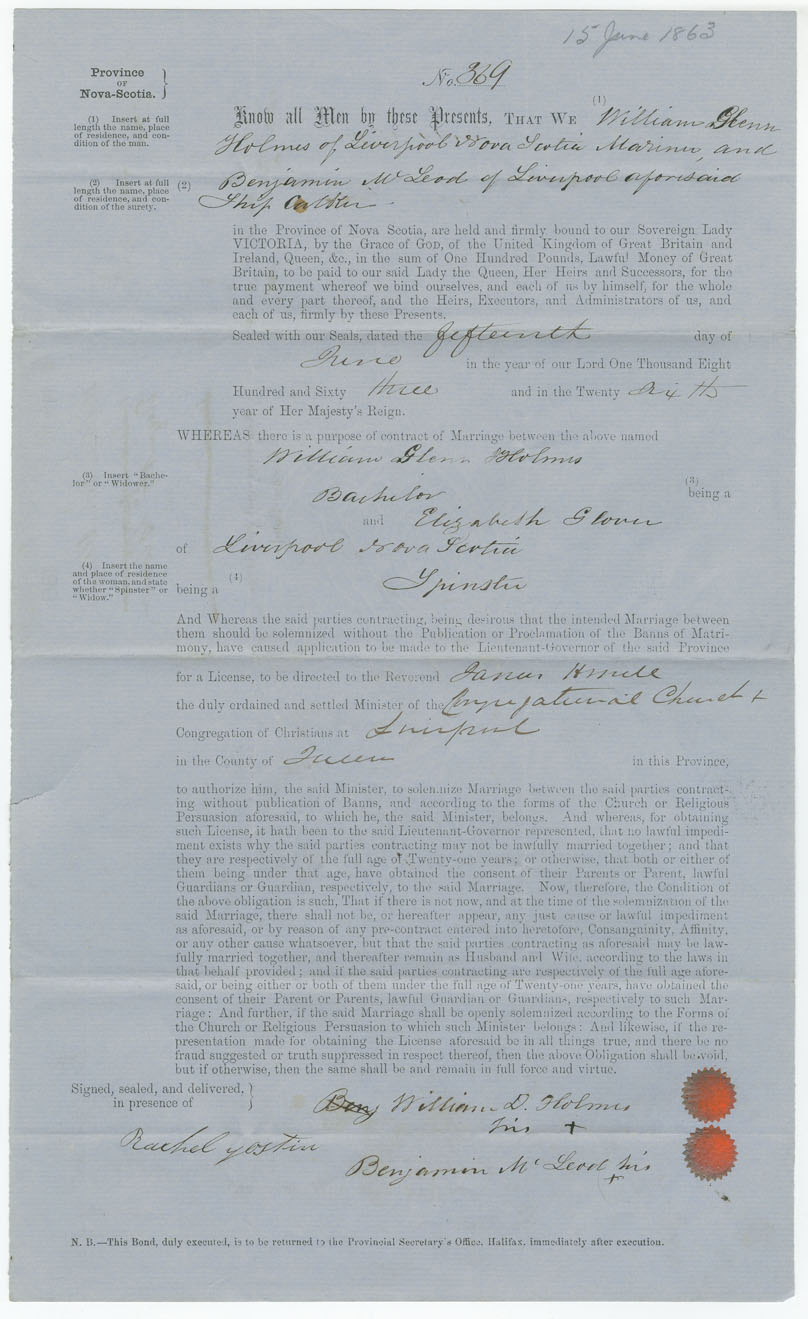 15 June 1863
No. 369
Province
OF
Nova-Scotia.
(1) Insert at full
length the name, place
of residence, and con-
dition of the man.
Know all Men by these Presents, THAT WE (1) William Glenn
Holmes of Liverpool Nova Scotia Mariner, and
(2) Insert at full
length the name, place
of residence, and con-
dition of the surety.
(2) Benjamin McLeod of Liverpool aforesaid
Ship
in the Province of Nova Scotia, are held and firmly bound to our Sovereign Lady
VICTORIA, by the Grace of GOD, of the United Kingdom of Great Britain and
Ireland, Queen, &c., in the sum of One Hundred Pounds, Lawful Money of Great
Britain, to be paid to our said Lady the Queen, Her Heirs and Successors, for the
true payment whereof we bind ourselves, and each of us by himself, for the whole
and every part thereof, and the Heirs, Executors, and Administrators of us, and
each of us, firmly by these Presents.
Sealed with our Seals, dated the fifteenth day of
June in the year of our Lord One Thousand Eight
Hundred and Sixty three and in the Twenty Sixth
year of Her Majesty's Reign.
WHEREAS there is a purpose of contract of Marriage between the above named
William Glenn Holmes
(3) Insert "Bache-
lor" or "Widower."
Bachelor (3) being a
and Elizabeth Glover
of Liverpool Nova Scotia
(4) Insert the name
and place of residence
of the woman, and state
whether "Spinster" or
"Widow."
being a (4) Spinster
And Whereas the said parties contracting, being desirous that the intended Marriage between
them should be solemnized without the Publication or Proclamation of the Banns of Matri-
mony, have caused application to be made to the Lieutenant-Governor of the said Province
for a License, to be directed to the Reverend James
the duly ordained and settled Minister of the Congregational Church +
Congregation of Christians at Liverpool
in the County of Queens in this Province,
to authorize him, the said Minister, to solemnize Marriage between the said parties contract-
ing without publication of Banns, and according to the forms of the Church or Religious
Persuasion aforesaid, to which he, the said Minister, belongs. And whereas, for obtaining
such License, it hath been to the said Lieutenant-Governor represented, that no lawful impedi-
ment exists why the said parties contracting may not be lawfully married together; and that
they are respectively of the full age of Twenty-one years; or otherwise, that both or either of
them being under that age, have obtained the consent of their Parents or Parent, lawful
Guardians or Guardian, respectively, to the said Marriage. Now, therefore, the Condition of
the above obligation is such, That if there is not now, and at the time of the solemnization of the
said Marriage, there shall not be, or hereafter appear, any just cause or lawful impediment
as aforesaid, or by reason of any pre-contract entered into heretofore, Consanguinity, Affinity,
or any other cause whatsoever, but that the said parties contracting as aforesaid may be law-
fully married together, and thereafter remain as Husband and Wife, according to the laws in
that behalf provided; and if the said parties contracting are respectively of the full age afore-
said, or being either or both of them under the full age of Twenty-one years, have obtained the
consent of their Parent or Parents, lawful Guardian or Guardians, respectively to such Mar-
riage: And further, if the said Marriage shall be openly solemnized according to the Forms of
the Church or Religious Persuasion to which such Minister belongs: And likewise, if the re-
presentation made for obtaining the License aforesaid be in all things true, and there be no
fraud suggested or truth suppressed in respect thereof, then the above Obligation shall be void,
but if otherwise, then the same shall be and remain in full force and virtue.
Signed, sealed, and delivered,
in presence of
Benj William D. Holmes
his +
Rachel
Benjamin McLeod his
+
N. B.—This Bond, duly executed, is to be returned to the Provincial Secretary's Office, Halifax, immediately after execution.